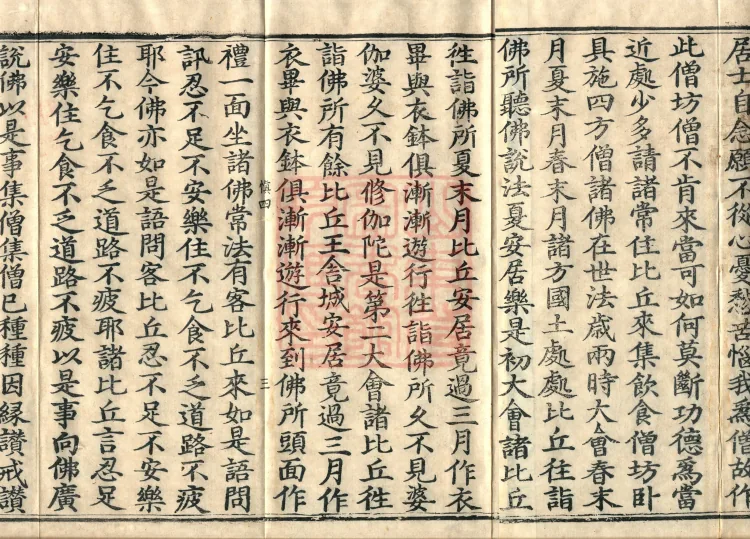 居士自念願不從心憂愁苦惱我爲僧故作
此僧坊僧不肯來當可如何莫斷功德爲當
近處少多請諸常住比丘來集飲食僧坊卧
具施四方僧諸佛在世法歳兩時大會春末
月夏末月春末月諸方國土處處比丘往詣
佛所聽佛說法夏安居樂是初大會諸比丘
徃詣佛所夏末月比丘安居竟過三月作衣
畢與衣鉢俱漸漸遊行徃詣佛所久不見婆
伽婆久不見修伽陀是第二大會諸比丘徃
詣佛所有餘比丘王舍城安居竟過三月作
衣畢與衣鉢俱漸漸遊行來到佛所頭面作
慎四
三
禮一面坐諸佛常法有客比丘來如是語問
訊忍不足不安樂住不乞食不乏道路不疲
耶今佛亦如是語問客比丘忍不足不安樂
住不乞食不乏道路不疲耶諸比丘言忍足
安樂住乞食不乏道路不疲以是事向佛廣
說佛以是事集僧集僧已種種因緣讃戒讃